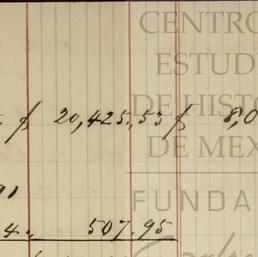 CENTRO
ESTUD
DE HISTO
DE MEX
$ 20,425.53 $ 8,0
FUNDA
4.. 507.95